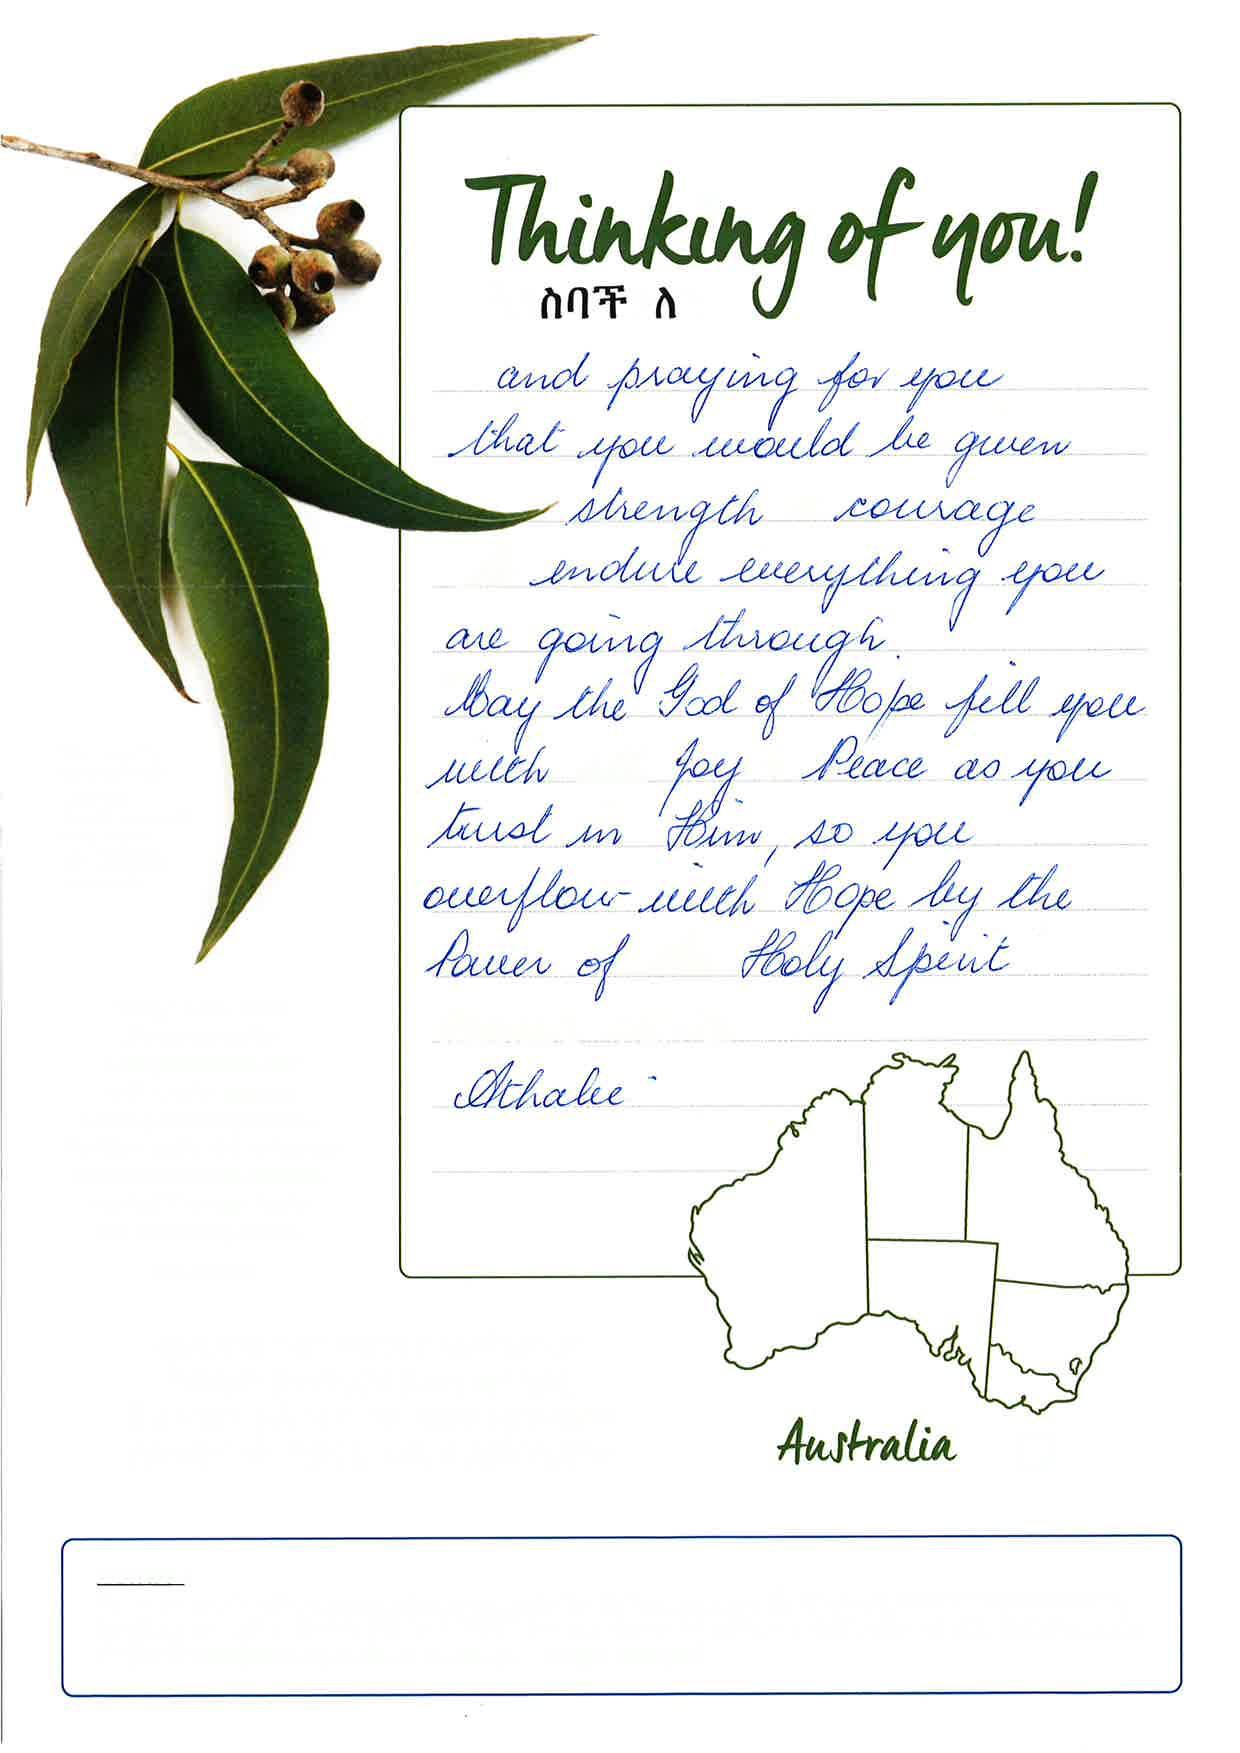 Thinking of you!
ስባች ለ
and praying for you
that you would be given
strength courage
endure everything you
are going through.
May the God of Hope fill you
with Joy Peace as you
trust in Him, so you
overflow with Hope by the
Power of Holy Spirit
Athalie
Australia